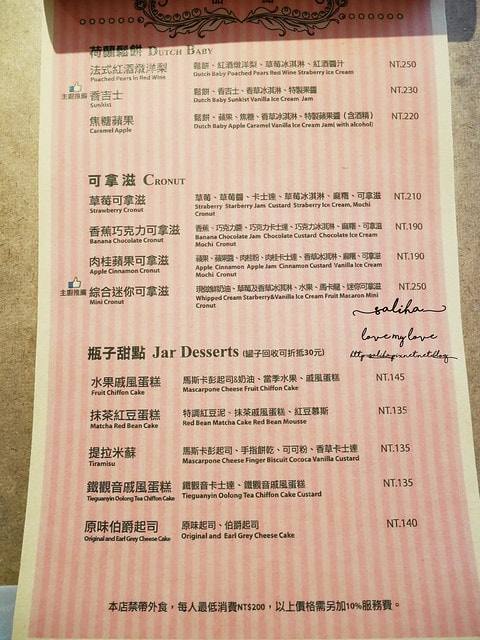 荷蘭鬆餅 DUTCH BABY
法式紅酒燉洋梨 鬆餅、紅酒燉洋梨、草莓冰淇淋、紅酒醬汁 NT.250
Poached Pears in Red Wine Dutch Baby Poached Pears Red Wine Straberry Ice Cream
主廚推薦 香吉士 鬆餅、香吉士、香草冰淇淋、特製果醬 NT.230
Sunkist Dutch Baby Sunkist Vanilla Ice Cream Jam
焦糖蘋果 鬆餅、蘋果、焦糖、香草冰淇淋、特製蘋果醬（含酒精） NT.220
Caramel Apple Dutch Baby Apple Caramel Vanilla Ice Cream Jam( with alcohol)
可拿滋 CRONUT
草莓可拿滋 草莓、草莓醬、卡士達、草莓冰淇淋、麻糬、可拿滋 NT.210
Strawberry Cronut Straberry Starberry Jam Custard Straberry Ice Cream, Mochi
Cronut
香蕉巧克力可拿滋 香蕉、巧克力醬、巧克力卡士達、巧克力冰淇淋、麻糬、可拿滋 NT.190
Banana Chocolate Cronut Banana Chocolate Jam Chocolate Custard Chocolate Ice Cream
Mochi Cronut
肉桂蘋果可拿滋 蘋果、蘋果醬、肉桂粉、肉桂卡士達、香草冰淇淋、麻糬、可拿滋 NT.190
Apple Cinnamon Cronut Apple Cinnamon Apple Jam Cinnamon Custard Vanilla Ice Cream
Mochi Cronut
主廚推薦 綜合迷你可拿滋 現做鮮奶油、草莓及香草冰淇淋、水果、馬卡龍、迷你可拿滋 NT.250
Mini Cronut Whipped Cream Starberry&Vanilla Ice Cream Fruit Macaron Mini
Cronut
saliha
love my love
瓶子甜點 Jar Desserts (罐子回收可折抵30元)
水果戚風蛋糕 馬斯卡彭起司&奶油、當季水果、戚風蛋糕 NT.145
Fruit Chiffon Cake Mascarpone Cheese Fruit Chiffon Cake
抹茶紅豆蛋糕 特調紅豆泥、抹茶戚風蛋糕、紅豆慕斯 NT.135
Matcha Red Bean Cake Red Bean Matcha Cake Red Bean Mousse
提拉米蘇 馬斯卡彭起司、手指餅乾、可可粉、香草卡士達 NT.135
Tiramisu Mascarpone Cheese Finger Biscuit Cococa Vanilla Custard
鐵觀音戚風蛋糕 鐵觀音卡士達、鐵觀音戚風蛋糕 NT.135
Tieguanyin Oolong Tea Chiffon Cake Tieguanyin Oolong Tea Chiffon Cake Custard
原味伯爵起司 原味起司、伯爵起司 NT.140
Original and Earl Grey Cheese Cake Original and Earl Grey Cheese Cake
本店禁帶外食，每人最低消費NT$200，以上價格需另加10%服務費。